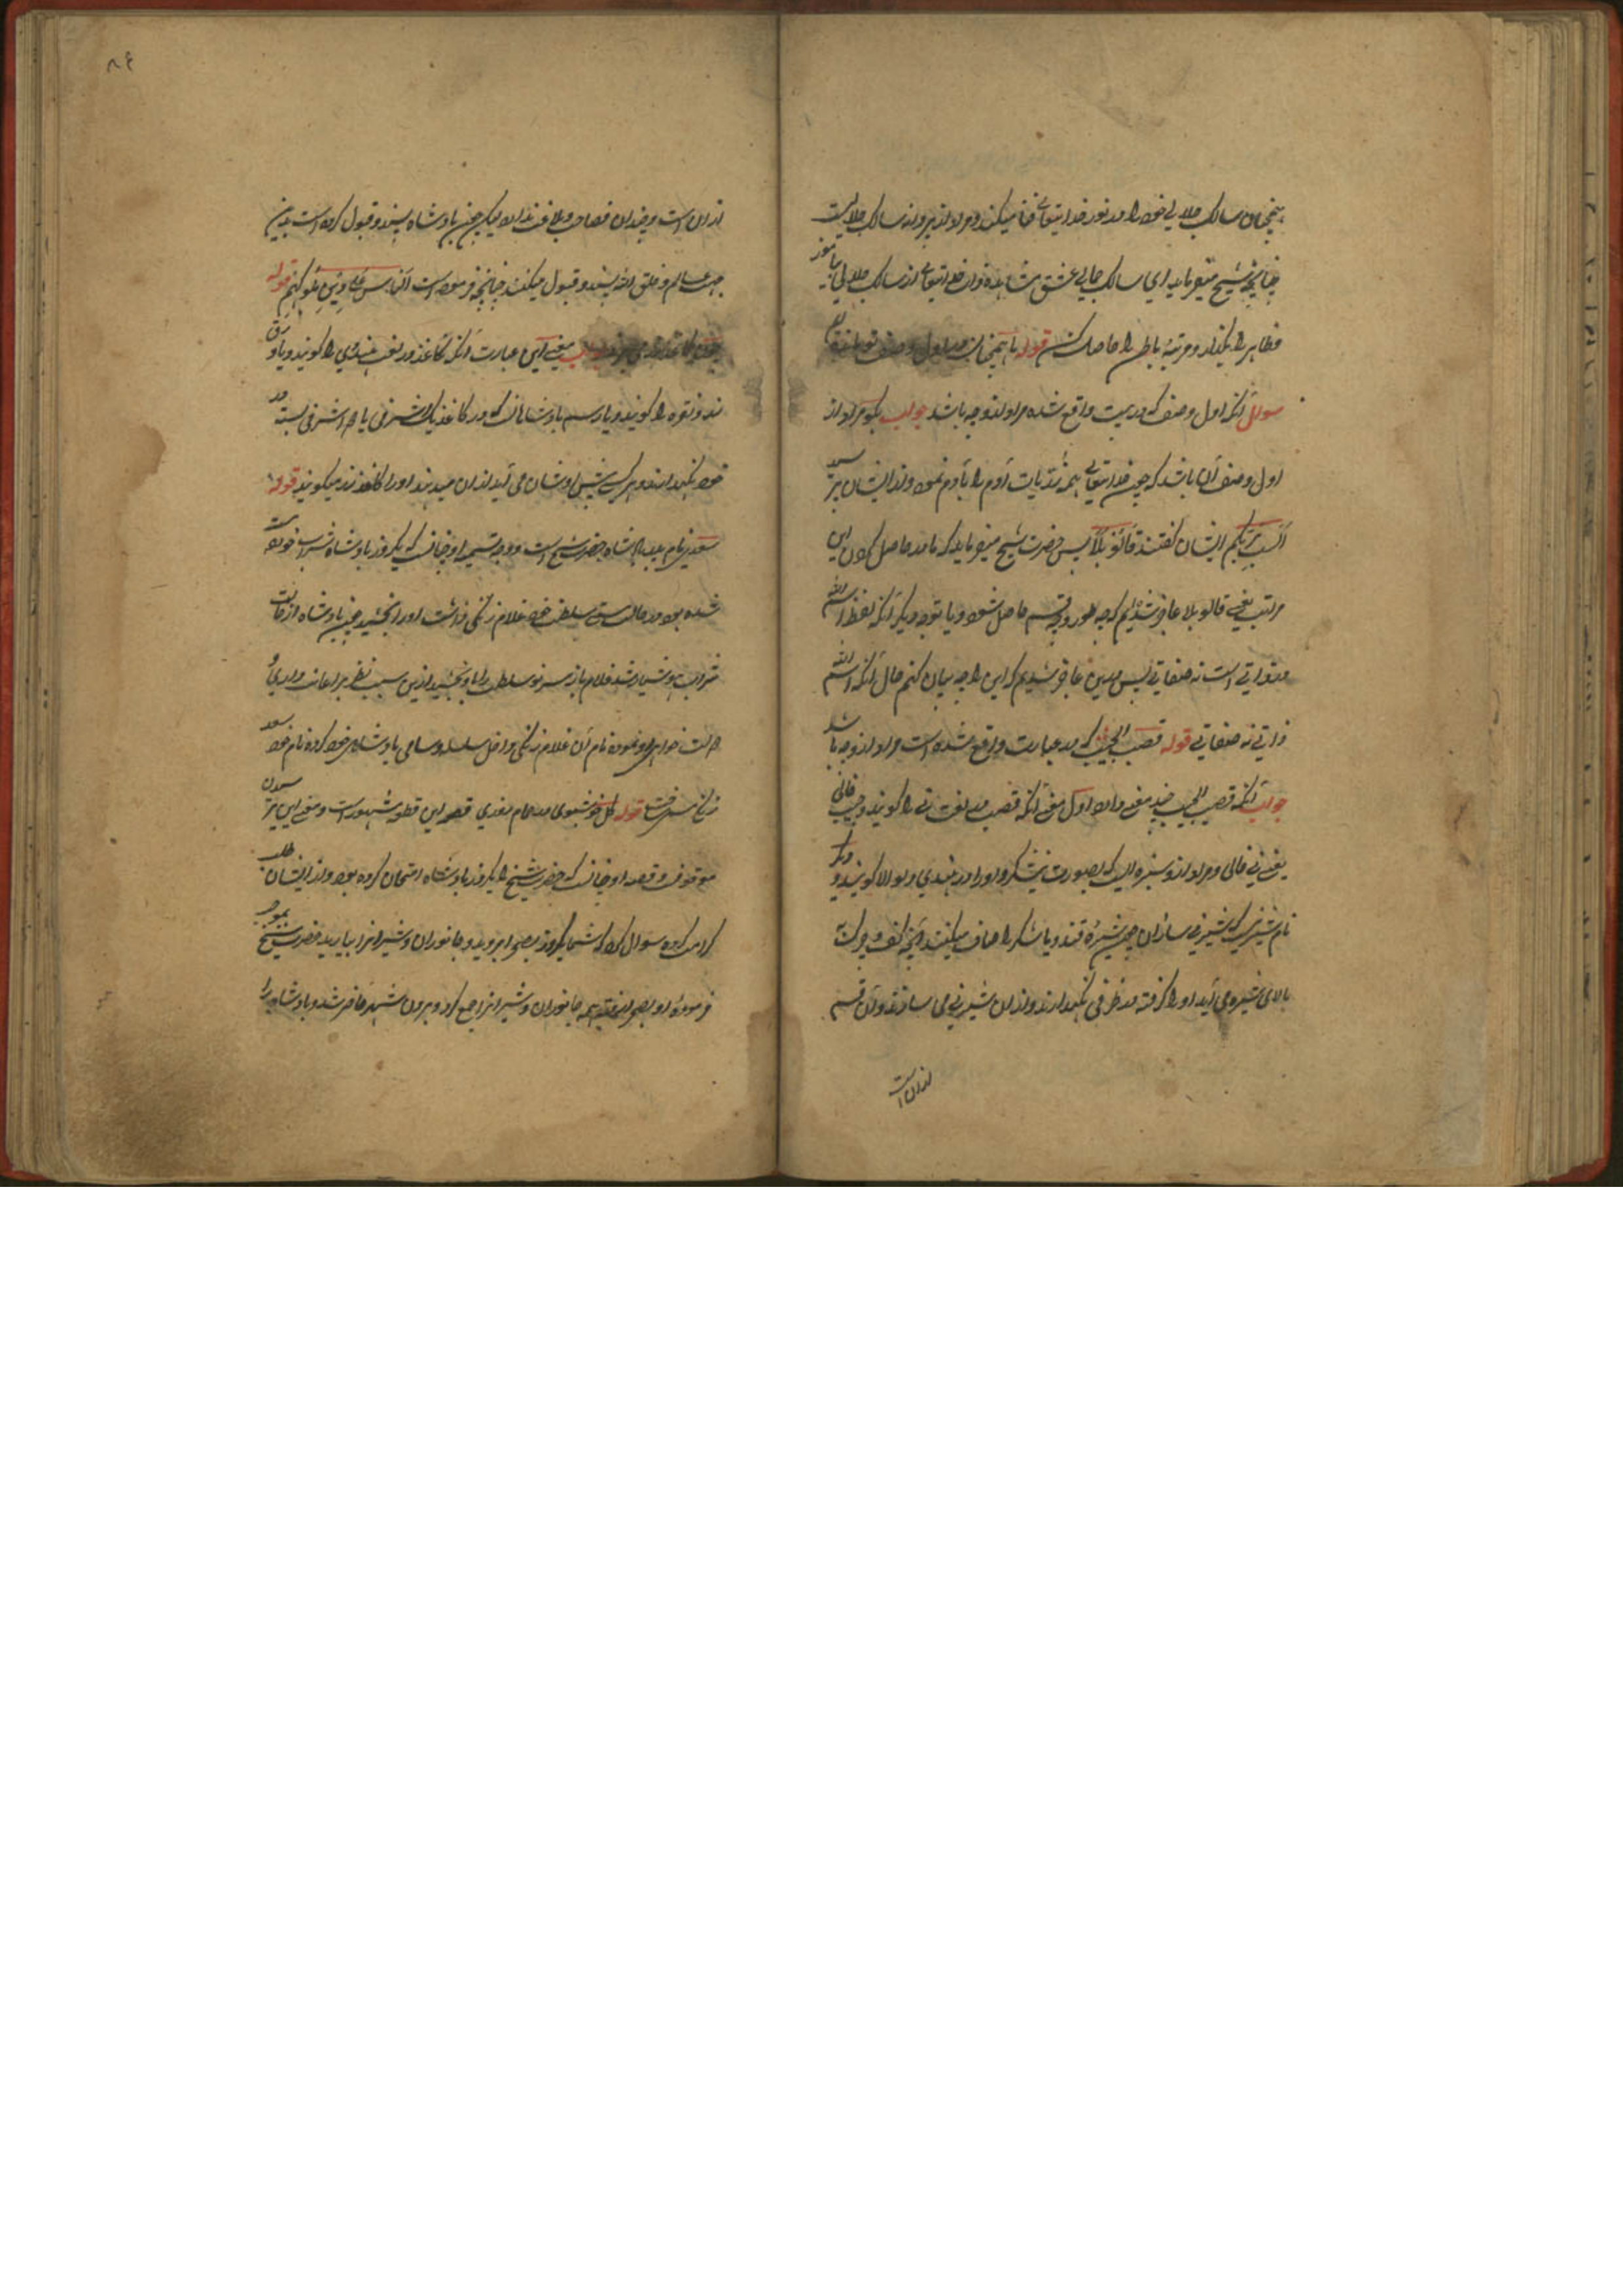 همچنان سالک جلالی خود را در نور خدایتعالی فنا میکند و مراد از پروانه سالک جلالیست
چنانچه شیخ میفرماید ای سالک جمالی عشق مشاهده ذات خدایتعالی از سالک جلالی بیاموز
ظاهر را بگذار و مرتبهٔ باطن را حاصل کن قوله ما همچنان در اول وصف تو مانده ایم
سوال آنکه اول وصف که در بیت واقع شده مراد از و چه باشد جواب بگو مراد از
اول وصف آن باشد که چون خدایتعالی همه ذریات آدم را بآدم نمود و از ایشان پرسید
الست بربکم ایشان گفتند قالو بلا پس حضرت شیخ میفرماید که ما در حاصل کردن این
مراتب یعنی قالو بلا عاجز شدیم که چه طور و چه قسم حاصل شود و یا توجه دیگر آنکه لفظ اسم الله
ذاتی است نه صفاتی پس درین عاجز شدیم که این را چه بیان کنم حال آنکه اسم الله
ذاتی نه صفاتی قوله قصب الجیب که در عبارت واقع شده است مراد از و چه باشد
جواب آنکه قصب الجیب چند معنی دارد اول معنی آنکه قصب در لغت نی را گویند و جیب خالی
یعنی نی خالی و مراد از و سبزه ایست که بصورت نیشکر و او را در هندی گویند و دیگر
نام شیرینی که شیرینی سازان چون شیرهٔ قند و یا شکر را صاف میکنند و آنچه کف و چرک
بالای شیره می آید او را گرفته در ظرفی نگهدارند و از ان شیرینی می سازند و آن قسم
از ان است
۸۶
از ان است و چندان فصاحت و بلاغت ندارد لیکن چون بادشاه پسند و قبول کرده است بدین
جهت عالم و خلق الله پسند و قبول میکنند چنانچه فرموده است الناس علی دین ملوکهم قوله
چون کاغذ زر می برند جواب معنی این عبارت آنکه کاغذ در لغت هندوی را گویند و یا ورق
زر و نقره را گویند و یا رسم بادشاهان که در کاغذ یک اشرفی یا ده اشرفی بسته در
خود نگهدارند و هر کسی پیش اوشان می آید از ان میدهند او را کاغذ زر میگویند قوله
سعد زنگی نام بادشاه حضرت شیخ است و وجه تسمیه او چنانست که یکروز بادشاه شراب خورده مست
شده بود در حالت مستی سلطنت خود غلام زنگی داشت او را بخشید چون بادشاه از حالت
شراب هوشیار شد غلام باز سر نو سلطنت را باو بخشید ازین سبب نظر بر اعانت و امداد و
خود کرده نام خود سعد
زنگی قوله گل خوشبوی در حمام روزی قصه این قطعه مشهور است و معنی این بر پرسیدن
موقوف و قصه او چنانست که حضرت شیخ را یکروز بادشاه امتحان کرده بود و از ایشان طلب
کرامت کرده سوال کرد که شما یکروز بصحرا بروید و جانوران و شیران را بیارید حضرت شیخ بموجب
فرمودهٔ او بصحرا رفتند همه جانوران و شیران را جمع کرد و بیرون شهر حاضر شد و بادشاه را